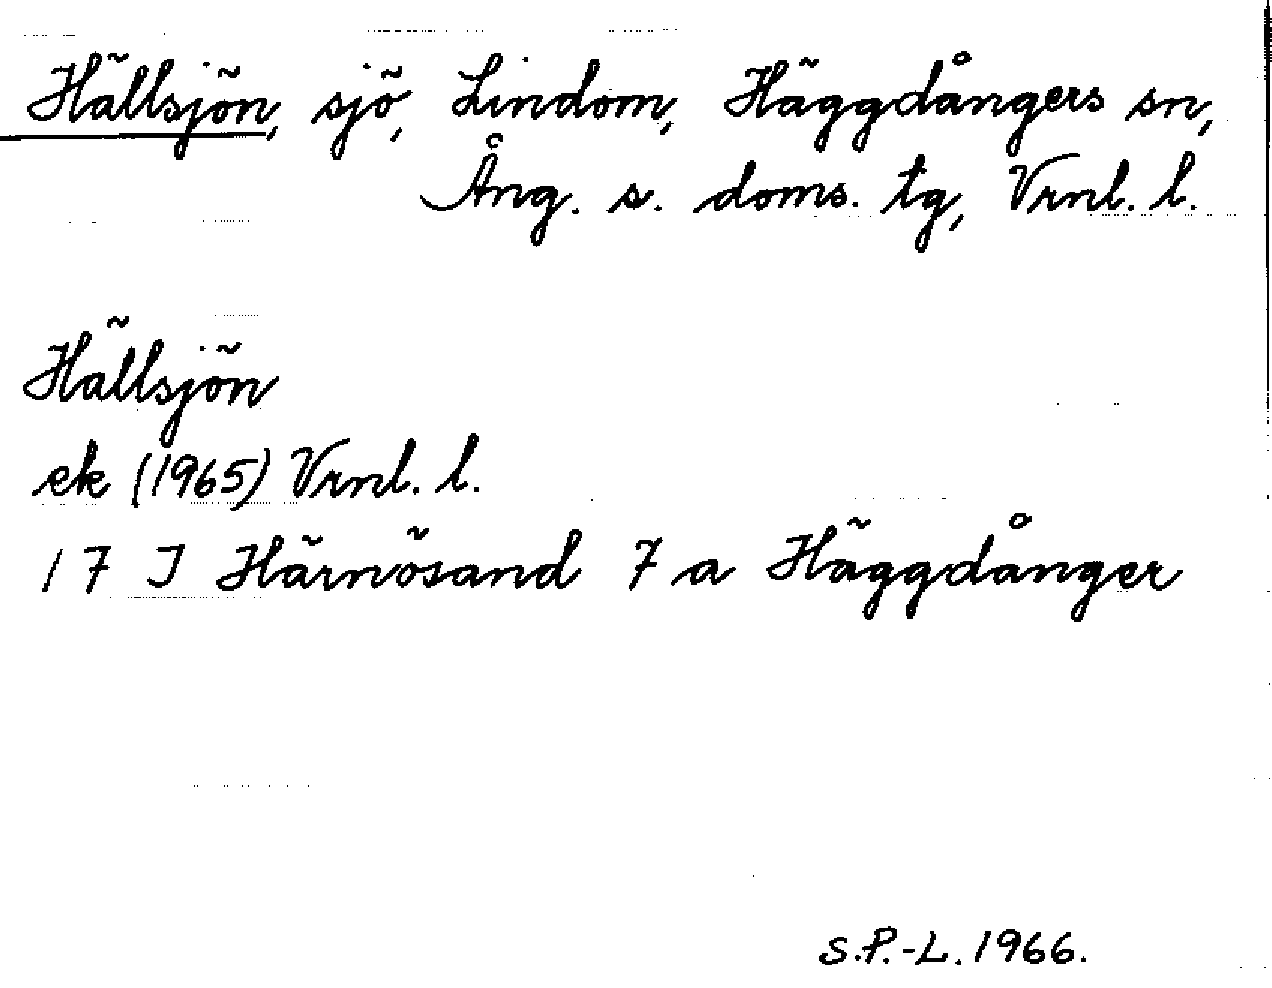 Hällsjön, sjö, Lindom, Häggdångers sn,
Ång. s. doms. tg, Vrnl. l.
Hällsjön
ek (1965) Vrnl. l.
17 I Härnösand 7 a Häggdånger
S.P.-L. 1966.